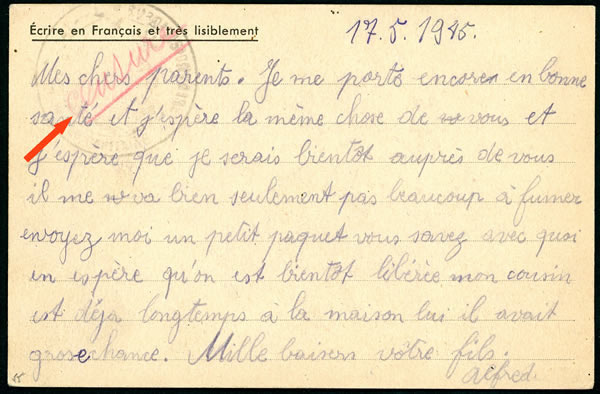 Écrire en Français et très lisiblement
17.5.1945.
censuré
Mes chers parents. Je me porte encore en bonne
santé et j'espère la même chose de vous et
j'espère que je serais bientôt auprès de vous
il me va bien seulement pas beaucoup à fumer
envoyez moi un petit paquet vous savez avec quoi
en espère qu'on est bientôt libérée mon cousin
est déja longtemps à la maison lui il avait
grosechance. Mille baisers vôtre fils.
Alfred